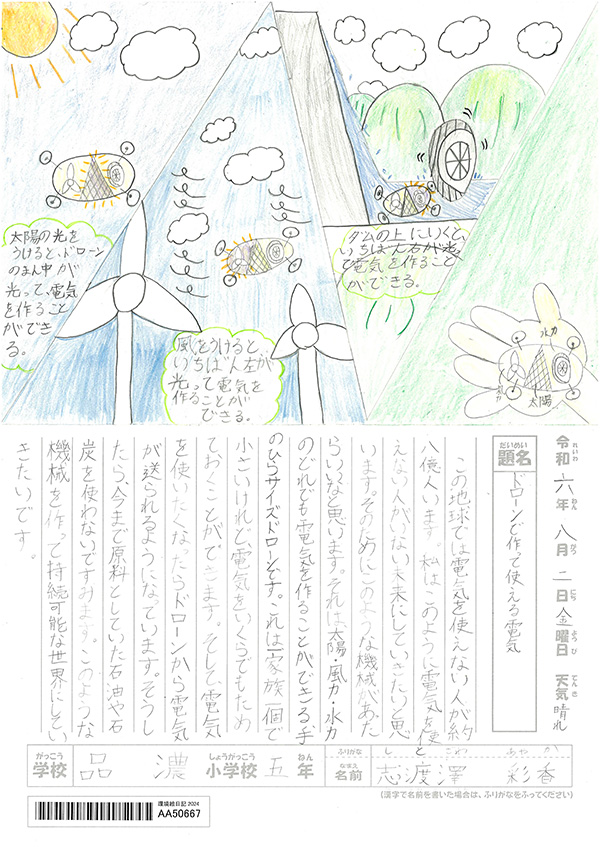 太陽の光を
うけると、ドローン
のまん中が
光って電気
を作ること
ができ
る。
風をうけると
いちば人左が
光って電気を
作ることが
できる。
ダムの上にいくと、
いちは人右が光っ
て電気を作ること
ができる。
水力
太陽
風力
令和六年八月二日金曜日 天気 晴れ
れいわ ねん がつ にち ようび てんき
だいめい
題名 ドローンで作って使える電気
この地球では電気を使えない人が約
八億人います。私はこのように電気を使
えない人がいない未来にしていきたいと思
います。そのためにこのような機械があた
らいいなと思います。それは太陽・風力・水力
のどれでも電気を作ることができる、手
のひらサイズドローンです。これは一家族一個で
小さいけれど、電気をいくらでもため
ておくことができます。そして、電気
を使いたくなったらドローンから電気
が送られるようになっています。そうし
たら、今まで原料としていた石油や石
炭を使わないですみます。このような
機械を作って持続可能な世界にしてい
きたいです。
がっこう しょうがっこう ねん
学校 品濃 小学校 五年
ふりがな しとざわ あやか
なまえ
名前 志渡澤 彩香
(漢字で名前を書いた場合は、ふりがなをふってください)
環境絵日記 2024
AA50667